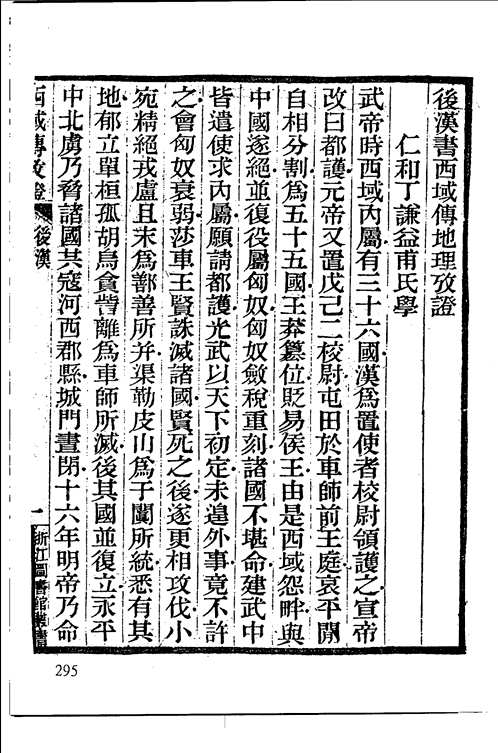 後漢書西域傳地理攷證
仁和丁謙益甫氏學
武帝時西域內屬有三十六國漢為置使者校尉領護之宣帝
改曰都護元帝又置戊己二校尉屯田於車師前王庭哀平間
自相分割為五十五國王莽篡位貶易侯王由是西域怨畔與
中國遂絕並復役屬匈奴匈奴斂稅重刻諸國不堪命建武中
皆遣使求內屬願請都護光武以天下初定未遑外事竟不許
之會匈奴衰弱莎車王賢誅滅諸國賢死之後遂更相攻伐小
宛精絕戎盧且末為鄯善所并渠勒皮山為于闐所統悉有其
地郁立單桓孤胡烏貪訾離為車師所滅後其國並復立永平
中北虜乃脅諸國共寇河西郡縣城門晝閉十六年明帝乃命
西域傳攷證 後漢 一 浙江圖書館叢書
295